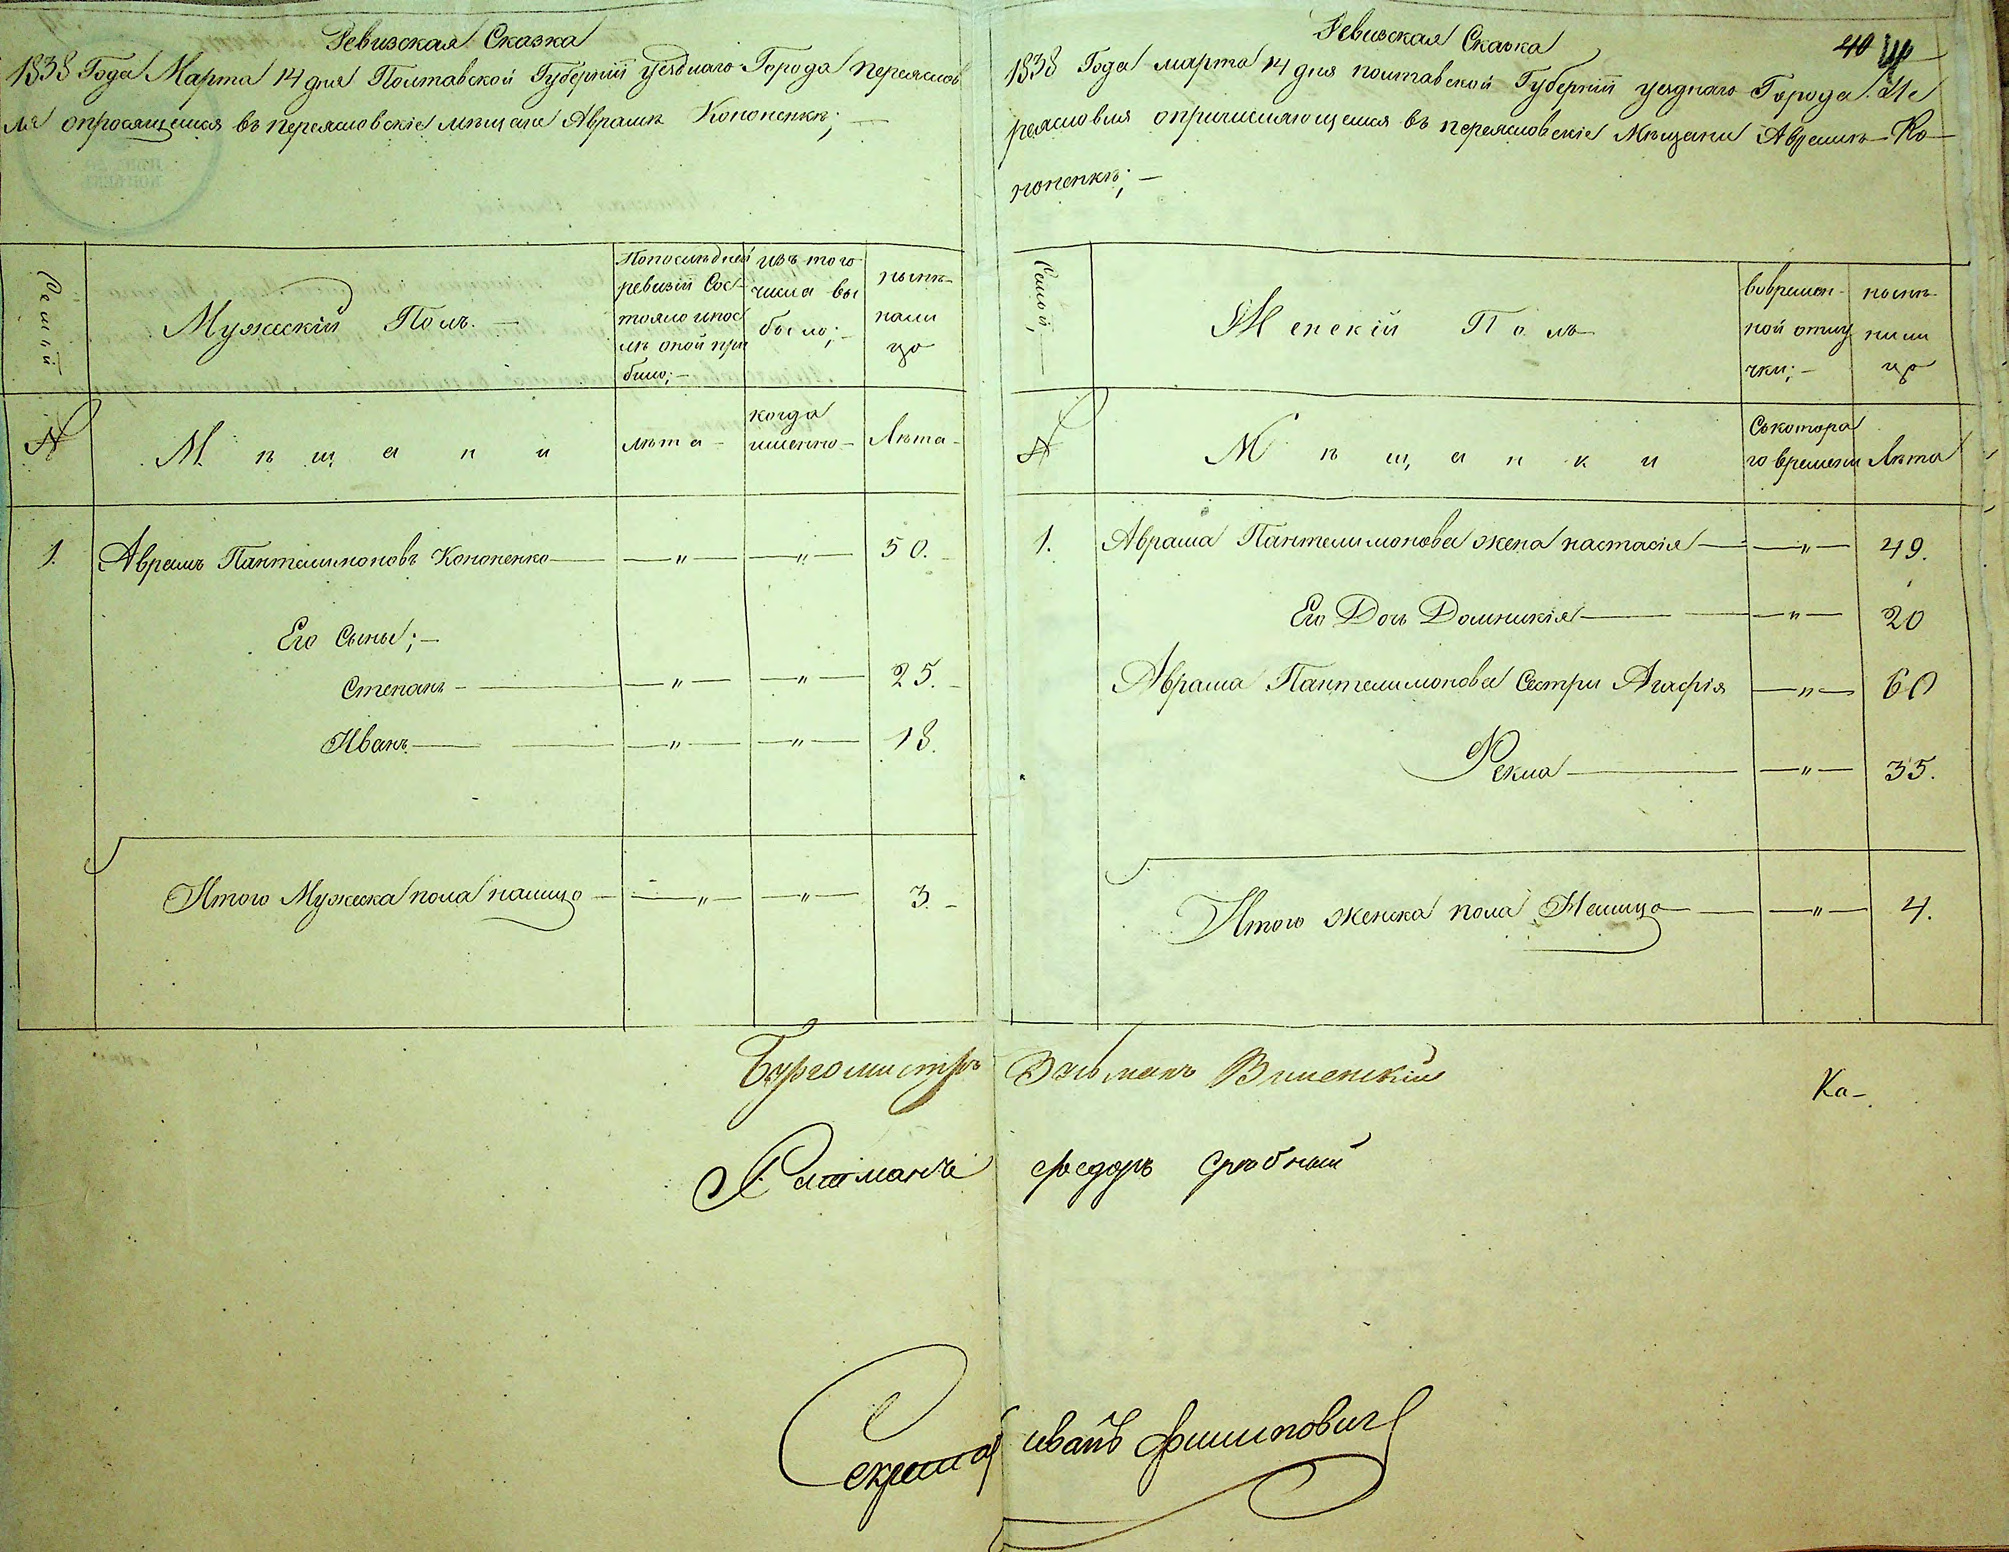 Ревизская Сказка
1838 Года Марта 14 дня Полтавской Губернїи уезднаго Города Переяслов
ля опросящемся въ переясловскіе мѣщане Аврамѣ Кононенкѣ; —
Семьи
Мужескій Полъ. —
По последней
ревизіи Сос-
тояло и пос
лѣ оной при
было; —
изъ того
числа вы
было; —
нынѣ
нали
цо
№
Мѣщани
лѣта —
когда
именно —
Лѣта —
1. Аврамъ Пантелимоновъ Кононенко — " — — " — 50.
Его Сыны; —
Степанъ — — " — — " — 25.
Иванъ — — " — — " — 18.
Итого Мужеска пола налицо — — " — — " — 3. —
Ревизская Сказка
40
1838 Года марта 14 дня полтавской Губернїи уезднаго Города Пе
реясловля опричисляющемся въ переясловскіе Мѣщани Аврамѣ Ко-
ноненкѣ; —
Семьи, —
Женскій Полъ
вовремен-
ной отлу
чки; —
нынѣ
нали
цо
№
Мѣщанки
Съ котора
го времени
Лѣта
1. Аврама Пантелимонова жена настасія — — " — 49.
Его Доч Домникія — — " — 20
Аврама Пантелимонова сестри Агафія — " — 60
Фекла — — " — 35.
Итого женска пола Налицо — — " — 4.
Бургомистръ Зельманъ Виленскій
Ка-
Ратманъ федоръ Срѣбный
Секретарь иванъ филиповичъ